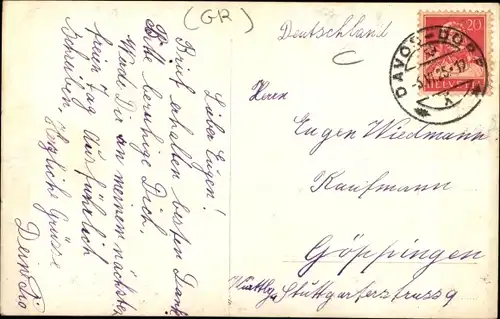 (GR)
Deutschland
C
20
HELVETIA
DAVOS-DORF
Lieber Eugen!
Brief erhalten besten Dank
Bitte beruhige Dich,
Werde Dir an meinem nächsten
freien Tag ausführlich
schreiben. Herzliche Grüsse
Dein
Herrn
Eugen Wiedmann
Kaufmann
Göppingen
Württbg. Stuttgarterstrasse